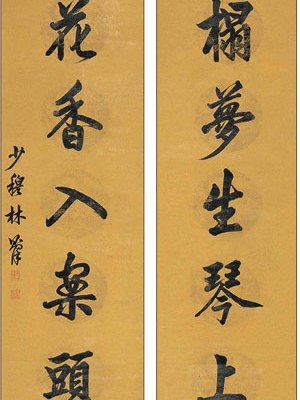 榻夢生琴上
花香入案頭
少穆林